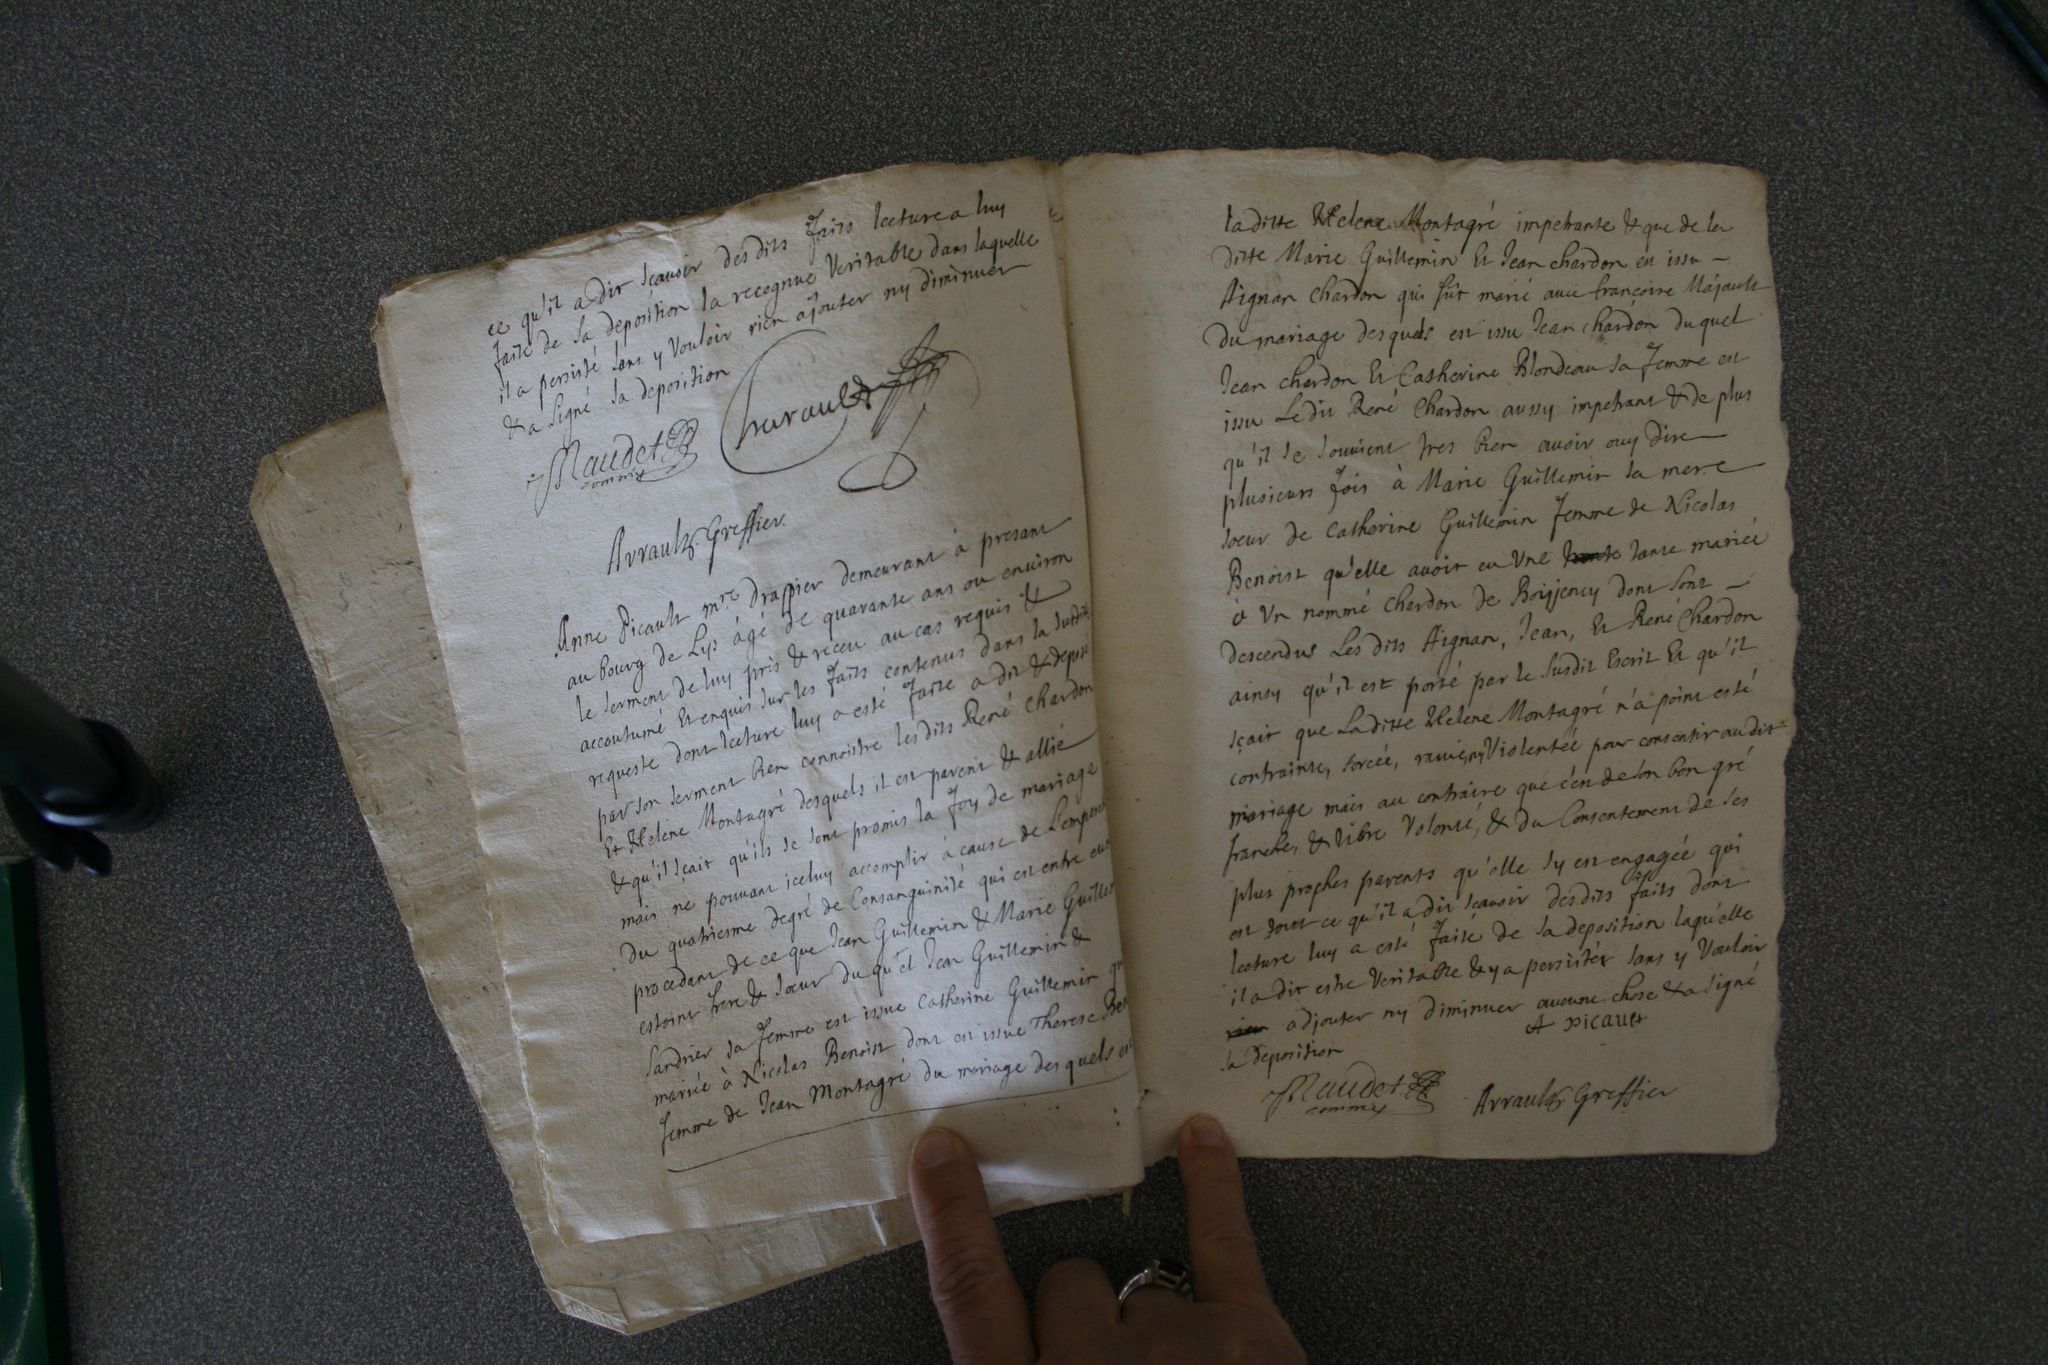 ce qu'il a dit sçavoir desdits faits lecture a luy
faite de sa deposition la recognue Veritable dans laquelle
il a persisté sans y vouloir rien ajouter ny diminuer
& a signé sa deposition
Maudet
commis
Arrault Greffier.
Anne Picault mre drappier demeurant à present
au bourg de Lys âgé de quarante ans ou environ
le serment de luy pris & receu au cas requis &
accoutumé Et enquis sur les faits contenus dans la susdite
requeste dont lecture luy a esté faite a dit & deposé
par son serment bien connoistre lesdits René Chardon
Et Helene Montagré desquels il est parent & allié
& qu'il sçait qu'ils se sont promis la foy de mariage
mais ne pouvant iceluy accomplir à cause de L'empesch
du quatriesme degré de Consanguinité qui est entre eux
procedant de ce que Jean Guillemin & Marie Guillem
estoint frere & soeur du quel Jean Guillemin &
Sandrier sa femme est issue Catherine Guillemin qu
mariée à Nicolas Benoist dont est issue Therese Ben
femme de Jean Montagré du mariage des quels est
la ditte Helene Montagré impetrante & que de la
ditte Marie Guillemin Et Jean chardon en issu
Aignan Chardon qui fut marié avec francoise Majault
du mariage desquels est issu Jean chardon duquel
Jean chardon Et Catherine Blondeau sa femme est
issu Ledit René Chardon aussy impetrant & de plus
qu'il se souvient tres bien avoir ouy dire
plusieurs fois à Marie Guillemin sa mere
soeur de Catherine Guillemin femme de Nicolas
Benoist qu'elle avoit eu une tante mariée
à Un nommé Chardon de Boijjency dont sont
descendus Les dits Aignan, Jean, Et René Chardon
ainsy qu'il est porté par le susdit Escrit Et qu'il
sçait que Laditte Helene Montagré n'a point esté
contrainte, forcée, ravie, ny Violentée pour consentir audit
mariage mais au contraire que c'en de son bon gré
franches & libre Volonté, & du Consentement de ses
plus proches parents qu'elle sy est engagée qui
est tout ce qu'il a dit sçavoir desdits faits dont
lecture luy a esté faite de sa deposition laquelle
il a dit estre Veritable & y a persister sans y Vouloir
adjouter ny diminuer aucune chose & a signé
sa deposition
A picault
Maudet
commis
Arrault Greffier